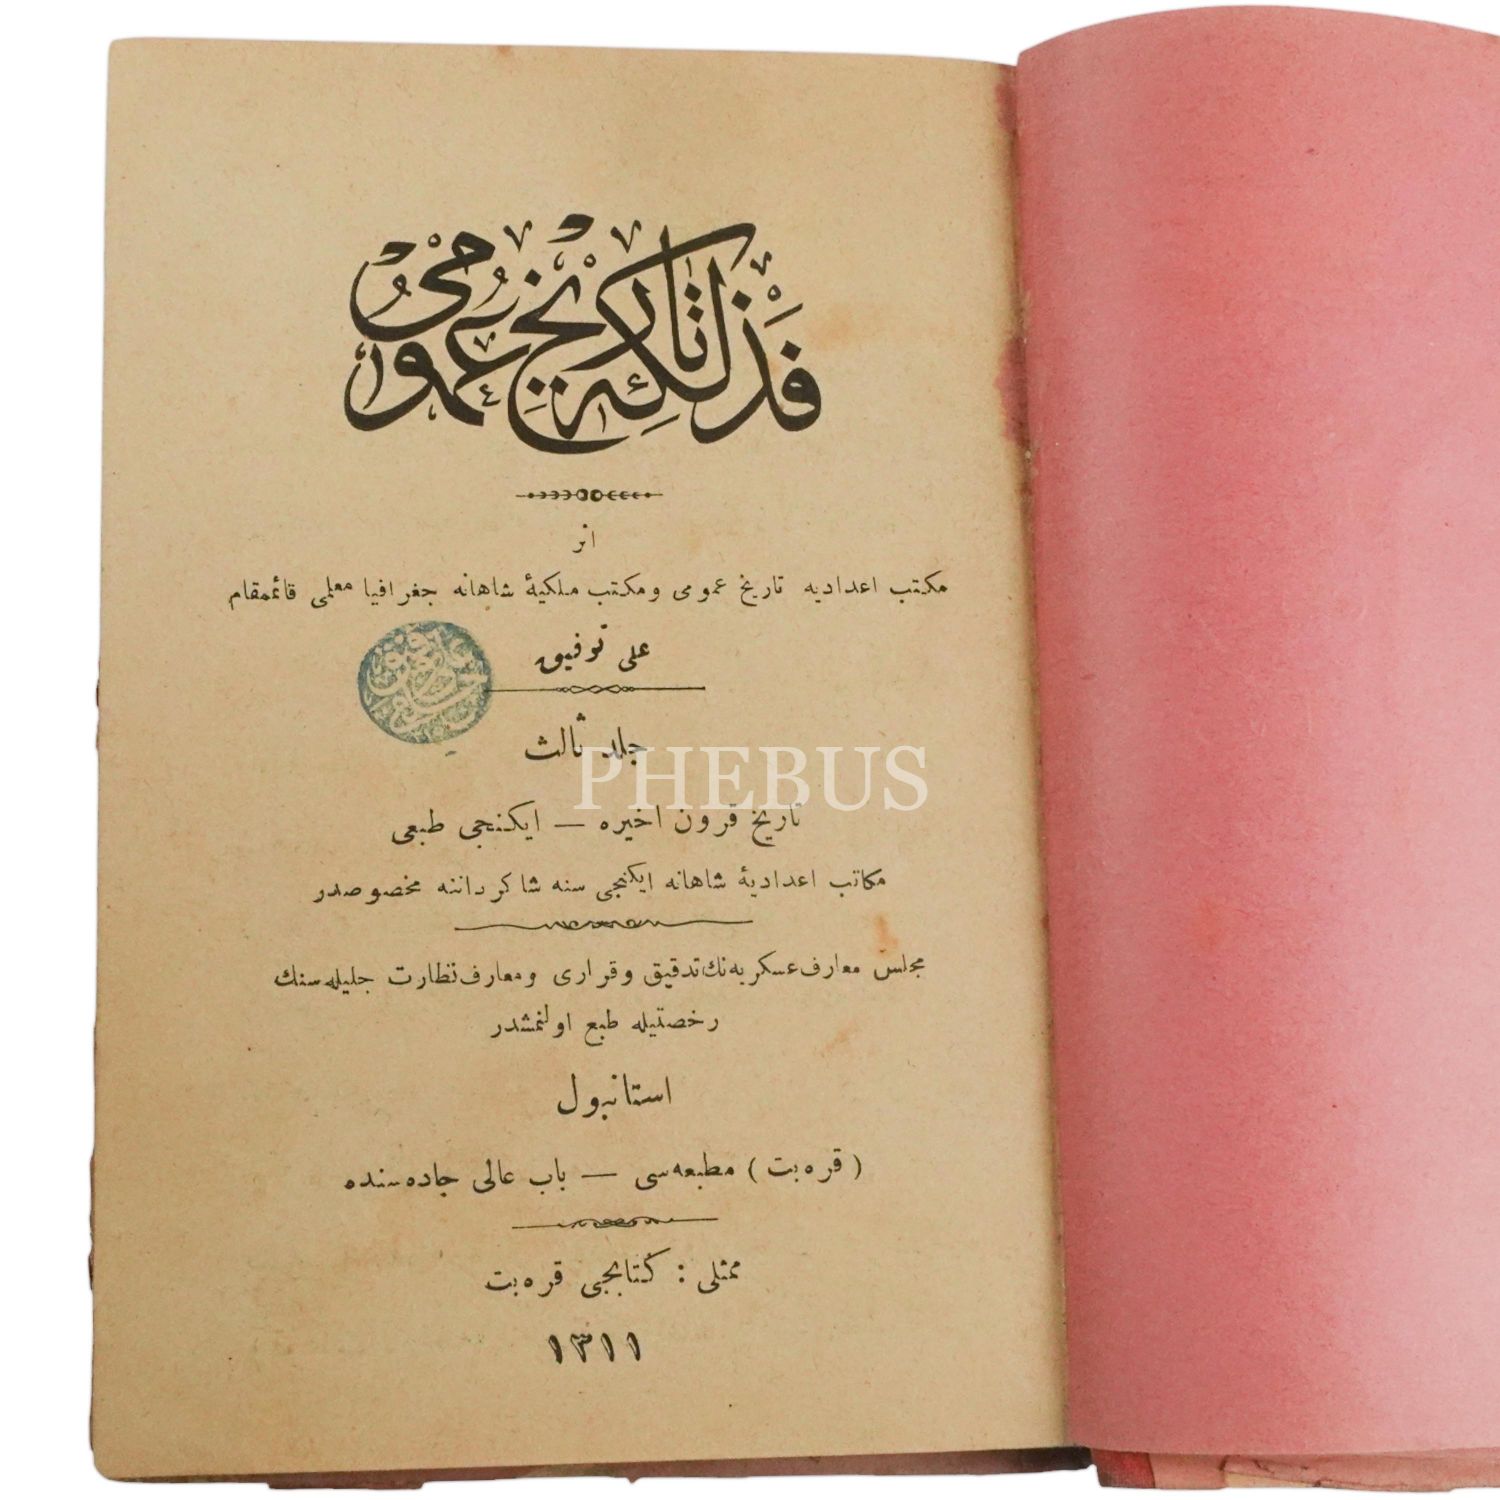 فذلكۀ تاريخ عمومی
اثر
مكتب اعداديه تاريخ عمومی ومكتب ملكيۀ شاهانه جغرافيا معلمی قائممقام
علی توفيق
جلد ثالث
PHEBUS
تاريخ قرون اخيره — ايكنجی طبعی
مكاتب اعداديۀ شاهانه ايكنجی سنه شاكرداننه مخصوصدر
مجلس معارف عسكريه‌نك تدقيق وقراری ومعارف نظارت جليله‌سنك
رخصتيله طبع اولنمشدر
استانبول
( قره‌بت ) مطبعه‌سی — باب عالی جاده‌سنده
ممثلی : كتابجی قره‌بت
١٣١١